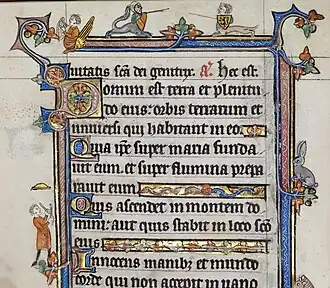 iutatis scā dei genitrix. A. Hec est
Domini est terra et plenitu
do eius: orbis terrarum et
uniuersi qui habitant in eo.
Quia ip̄e super maria funda
uit eum. et super flumina prepa
rauit eum
Quis ascendet in montem do
mini: aut quis stabit in loco scō
eius
Innocens manibꝫ et mundo
corde qui non accepit in uano